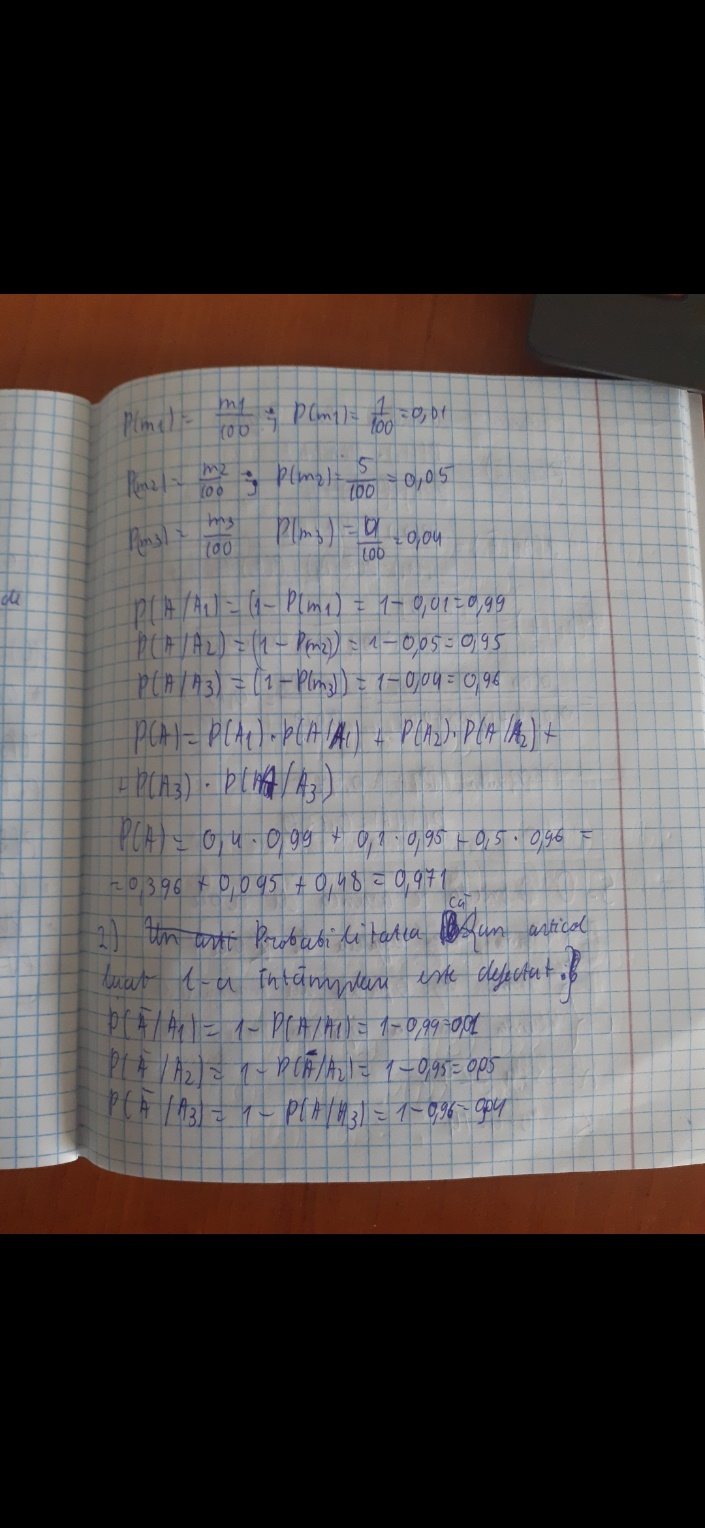 P(m1) = m1/100 ; P(m1) = 1/100 = 0,01
P(m2) = m2/100 ; P(m2) = 5/100 = 0,05
P(m3) = m3/100 P(m3) = 4/100 = 0,04
de
P(A/A1) = (1 - P(m1) = 1 - 0,01 = 0,99
P(A/A2) = (1 - P(m2)) = 1 - 0,05 = 0,95
P(A/A3) = (1 - P(m3)) = 1 - 0,04 = 0,96
P(A) = P(A1) · P(A/A1) + P(A2) · P(A/A2) +
+ P(A3) · P(A/A3)
P(A) = 0,4 · 0,99 + 0,1 · 0,95 + 0,5 · 0,96 =
= 0,396 + 0,095 + 0,48 = 0,971
2.) Probabilitatea că {un articol
luat l-a întâmplare este defectat.}
P(Ā/A1) = 1 - P(A/A1) = 1 - 0,99 = 0,01
P(Ā/A2) = 1 - P(A/A2) = 1 - 0,95 = 0,05
P(Ā/A3) = 1 - P(A/A3) = 1 - 0,96 = 0,04